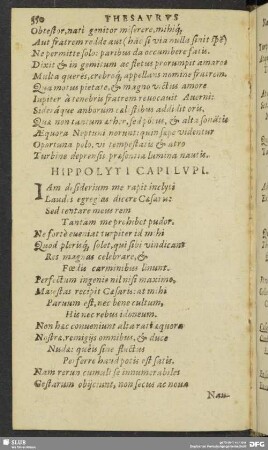 550 THESAVRVS
Obtestor, nati genitor miserere, mihiq́;
Aut fratrem redde aut (hac si via nulla sinit spē)
Ne permitte solo: paribus da occumbere fatis.
Dixit & in gemitum ac fletus prorumpit amaros
Multa querēs, crebroq́; appellans nomine fratrem.
Qua motus pietate, & magno victus amore
Iupiter à tenebris fratrem reuocauit Auernis
Sideraq́ue amborum cœlestibus addidit oris,
Quæ non tantum arbor, sed puppis, & alta sonātis
Æquora Neptuni norunt: quin sæpe videntur
Oportuna polo, vt tempestatis & atro
Turbine deprensis præsentia lumina nautis.
HIPPOLYTI CAPILVPI.
IAm desiderium me rapit inclyti
Laudis egregias dicere Cæsaris:
Sed tentare meus rem
Tantam me prohibet pudor.
Ne forte eueniat turpiter id mihi
Quod plerisq́; solet, qui sibi vindicant
Res magnas celebrare, &
Fœdis carminibus linunt.
Perfectum ingenio nil nisi maximo
Maiestas recipit Cæsaris: at mihi
Paruum est, nec bene cultum,
His nec rebus idoneum.
Non hæc conueniunt alta rati æquora
Nostræ, remigijs omnibus, & duce
Nudæ: quêis sine fluctus
Perferre haud potis est satis.
Nam rerum cumuli se innumerabiles
Gestarum obijciunt, non secus ac noua
Nau-
SLUB